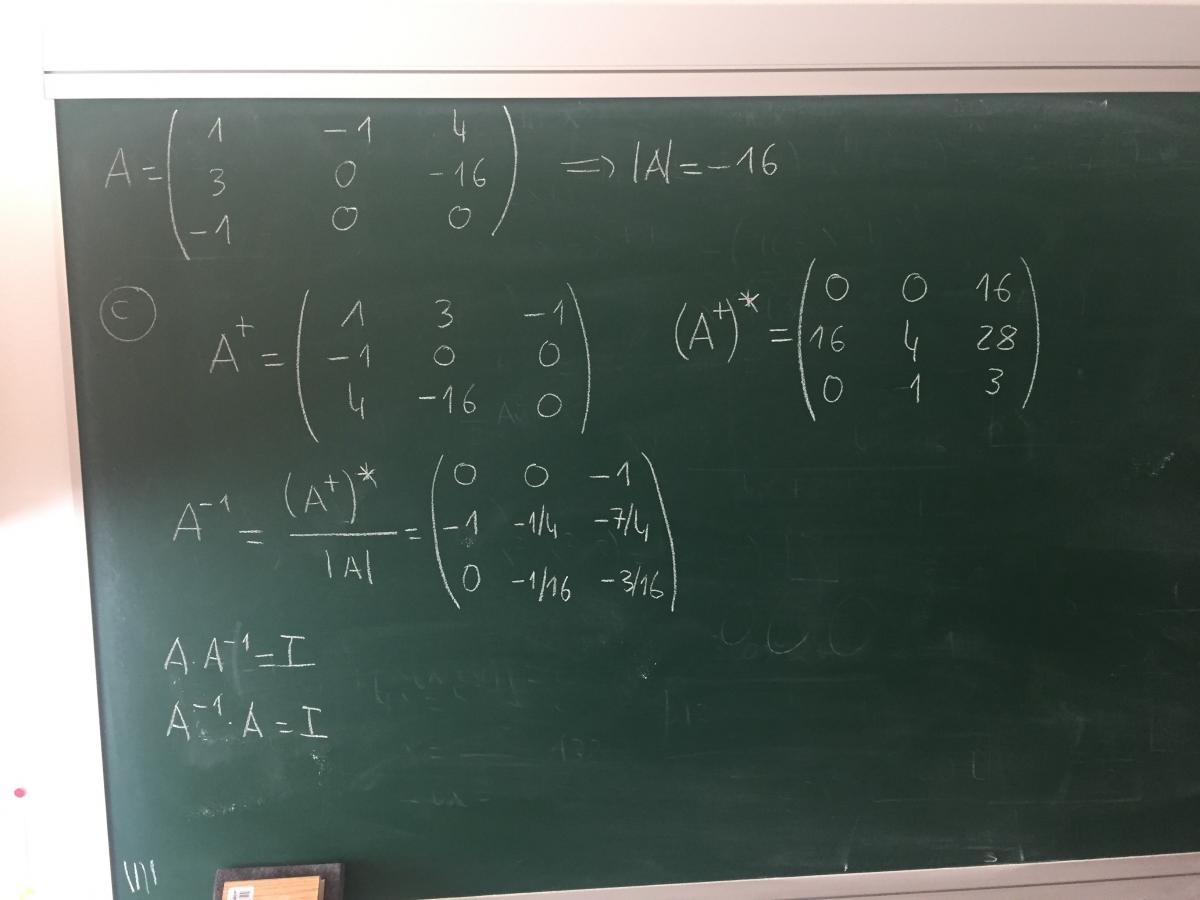 A = ( 1 -1 4
3 0 -16
-1 0 0 ) => |A| = -16
c
A⁺ = ( 1 3 -1
-1 0 0
4 -16 0 )
(A⁺)* = ( 0 0 16
16 4 28
0 -1 3 )
A⁻¹ = (A⁺)* / |A| = ( 0 0 -1
-1 -1/4 -7/4
0 -1/16 -3/16 )
A · A⁻¹ = I
A⁻¹ · A = I